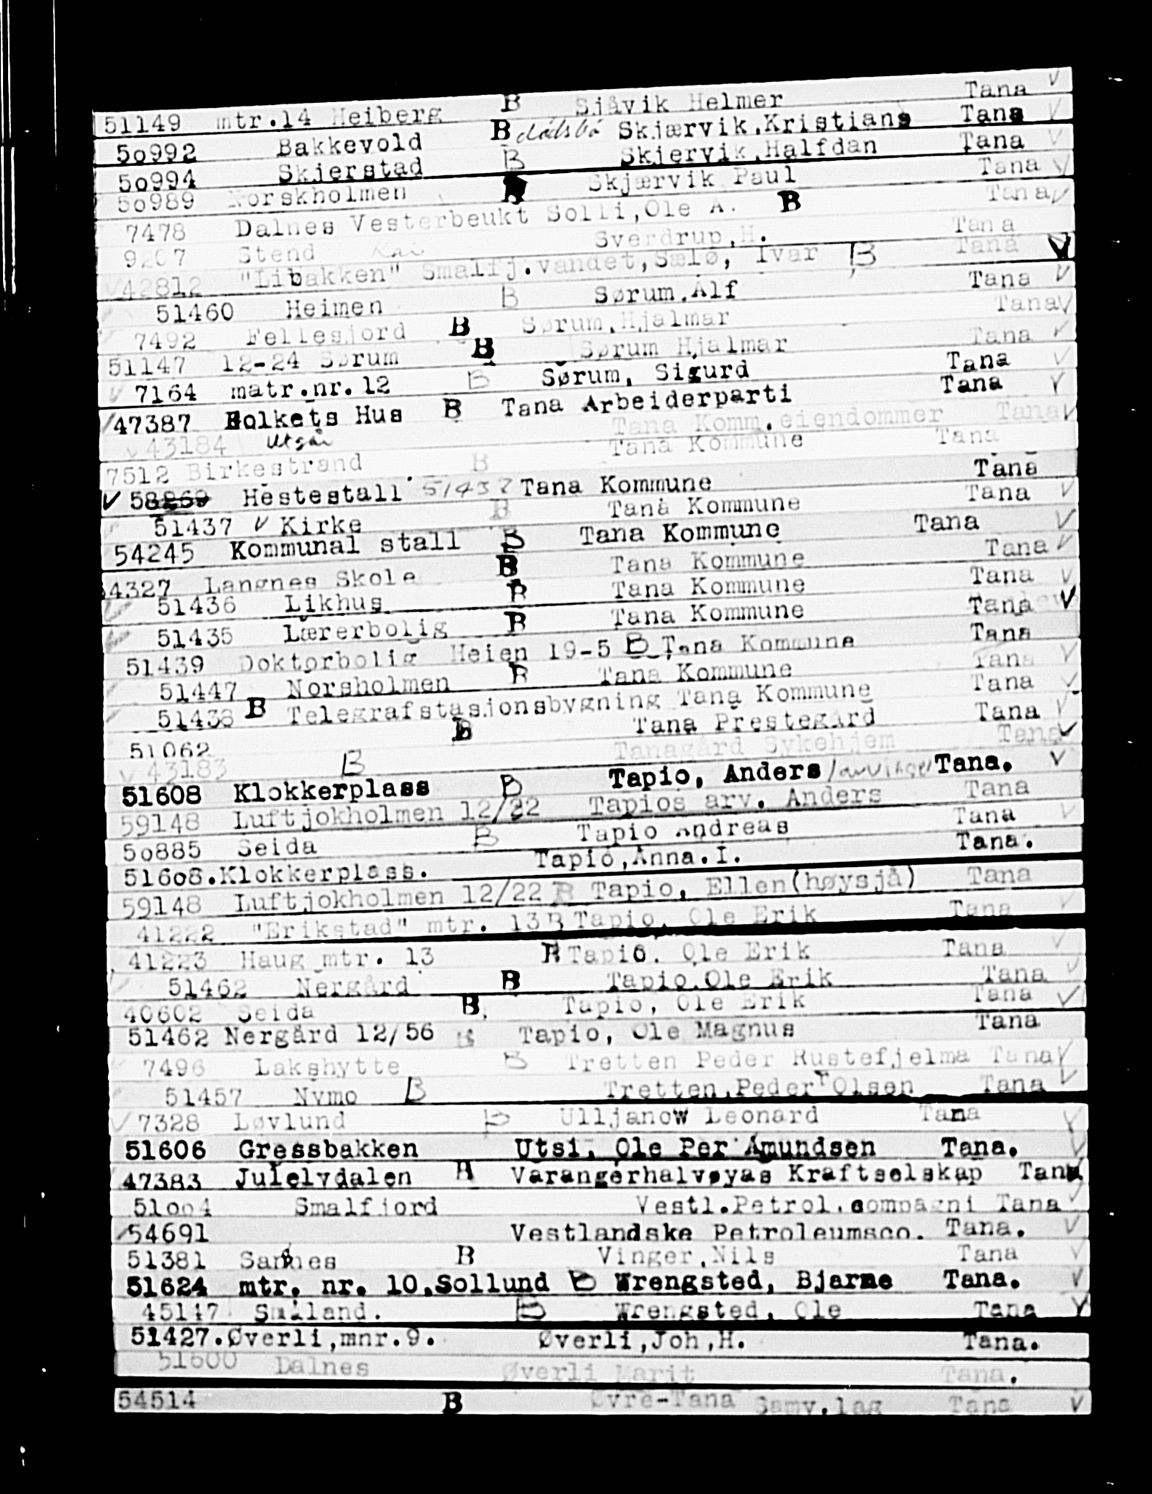 51149 mtr.14 Heiberg B Sjåvik Helmer Tana
50992 Bakkevold B Skjærvik.Kristiane Tana
50994 Skjerstad B Skjervik.Halfdan Tana
50989 Norskholmen Skjærvik Paul Tana
7478 Dalnes Vesterbeukt Solli,Ole A. B Tana
9207 Stend Sverdrup,H. Tana
42812 "Libakken" Smalfj.vandet,Sælø, Ivar B Tana
51460 Heimen B Sørum.Alf Tana
7492 Fellesjord B Sørum,Hjalmar Tana
51147 12-24 Sørum B Sørum Hjalmar Tana
7164 matr.nr.12 B Sørum, Sigurd Tana
47387 Folkets Hus B Tana Arbeiderparti Tana
43184 Utgår Tana Komm.eiendommer Tana
7512 Birkestrand B Tana Kommune Tana
58269 Hestestall 51437 Tana Kommune Tana
51437 Kirke B Tana Kommune Tana
54245 Kommunal stall B Tana Kommune Tana
4327 Langnes Skole B Tana Kommune Tana
51436 Likhus B Tana Kommune Tana
51435 Lærerbolig B Tana Kommune Tana
51439 Doktorbolig Heien 19-5 B Tana Kommune Tana
51447 Norsholmen B Tana Kommune Tana
51438 B Telegrafstasjonsbygning Tana Kommune Tana
51062 B Tana Prestegård Tana
43183 B Tanagård Sykehjem Tana
51608 Klokkerplass B Tapio, Anders Tana.
59148 Luftjokholmen 12/22 Tapios arv. Anders Tana
50885 Seida B Tapio Andreas Tana
51608.Klokkerplass. Tapio,Anna.I. Tana.
59148 Luftjokholmen 12/22 B Tapio, Ellen(høysjå) Tana
41222 "Erikstad" mtr. 13 B Tapio, Ole Erik Tana
41223 Haug mtr. 13 B Tapio. Ole Erik Tana
51462 Nergård B Tapio.Ole Erik Tana
40602 Seida B. Tapio, Ole Erik Tana
51462 Nergård 12/56 B Tapio, Ole Magnus Tana
7496 Lakshytte B Tretten Peder Rustefjelma Tana
51457 Nymo B Tretten.Peder Olsen Tana
7328 Løvlund B Ulljanow Leonard Tana
51606 Gressbakken Utsi, Ole Per Amundsen Tana.
47383 Julelvdalen B Varangerhalvøyas Kraftselskap Tana
51004 Smalfjord Vestl.Petrol.compagni Tana
54691 Vestlandske Petroleumsco. Tana.
51381 Sannes B Vinger,Nils Tana
51624 mtr. nr. 10.Sollund B Wrengsted, Bjarne Tana.
45147 Småland. B Wrengsted, Ole Tana
51427.Øverli,mnr.9. Øverli,Joh,H. Tana.
51600 Dalnes Øverli Marit Tana.
54514 B Øvre-Tana Samv.lag Tana